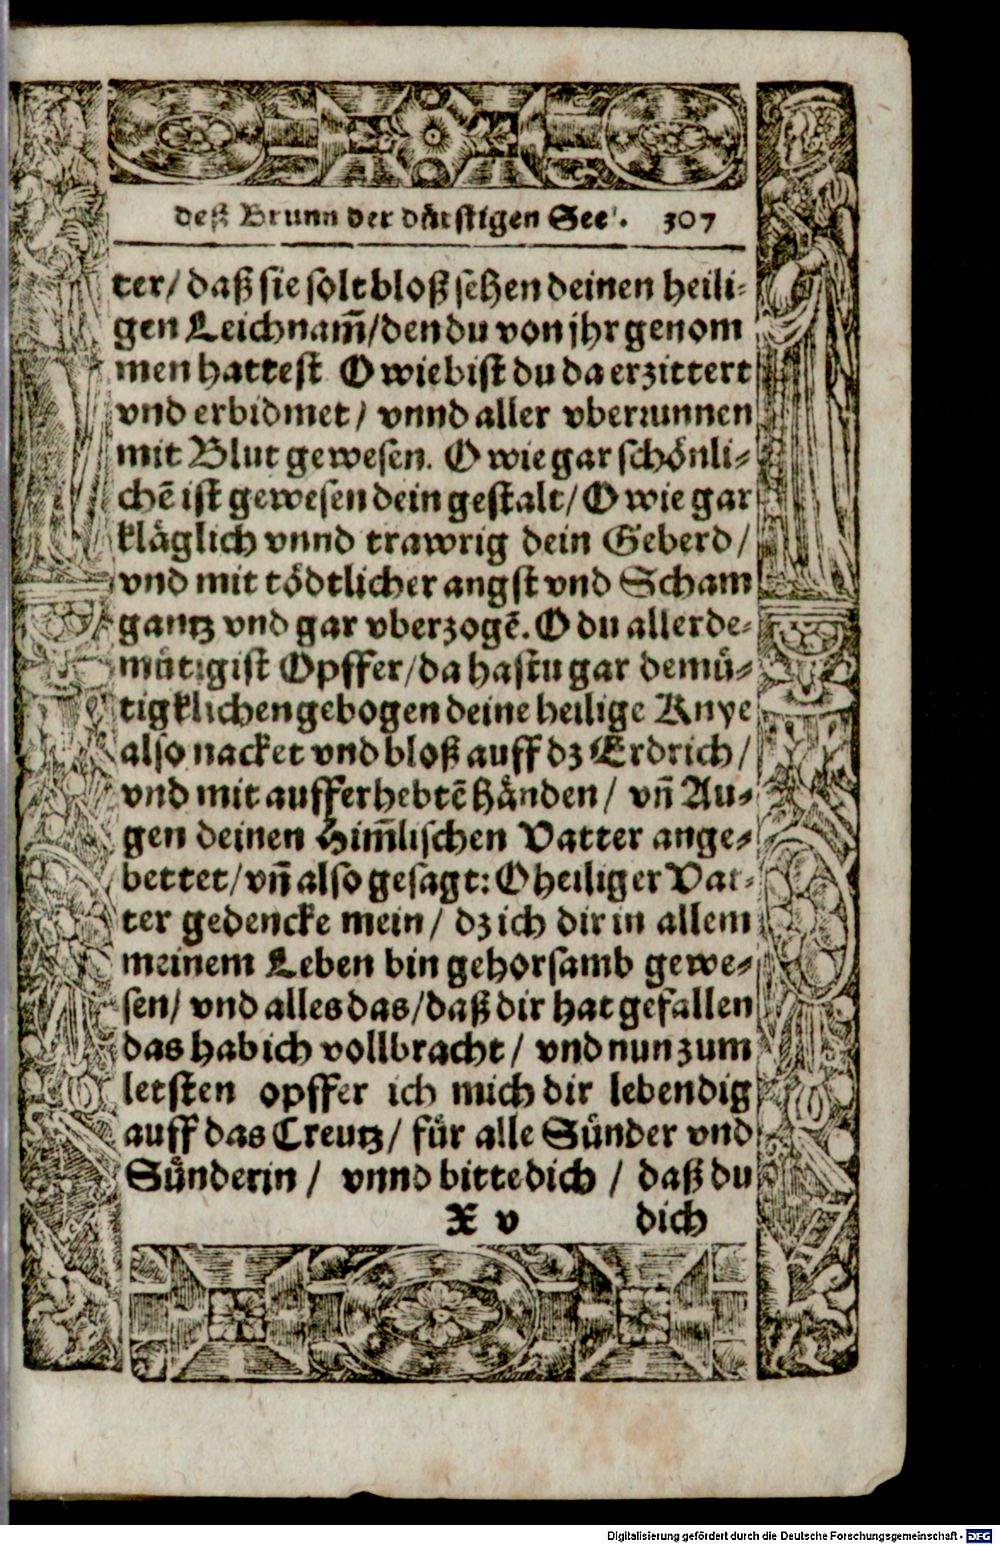 deß Brunn der dürstigen Seel. 307
ter/ daß sie solt bloß sehen deinen heili-
gen Leichnam̃/den du von jhr genom
men hattest O wie bist du da erzittert
vnd erbidmet/ vnnd aller vberrunnen
mit Blut gewesen. O wie gar schönli-
chē ist gewesen dein gestalt/ O wie gar
kläglich vnnd trawrig dein Geberd/
vnd mit tödtlicher angst vnd Scham
gantz vnd gar vberzogē. O du allerde-
mütigist Opffer/da hastu gar demü-
tigklichen gebogen deine heilige Knye
also nacket vnd bloß auff dz Erdrich/
vnd mit aufferhebtē Händen/ vñ Au-
gen deinen Him̃lischen Vatter ange-
bettet/vñ also gesagt: O heiliger Vat-
ter gedencke mein/ dz ich dir in allem
meinem Leben bin gehorsamb gewe-
sen/ vnd alles das/daß dir hat gefallen
das hab ich vollbracht/ vnd nun zum
letsten opffer ich mich dir lebendig
auff das Creutz/ für alle Sünder vnd
Sünderin/ vnnd bitte dich/ daß du
X v dich
Digitalisierung gefördert durch die Deutsche Forschungsgemeinschaft - DFG